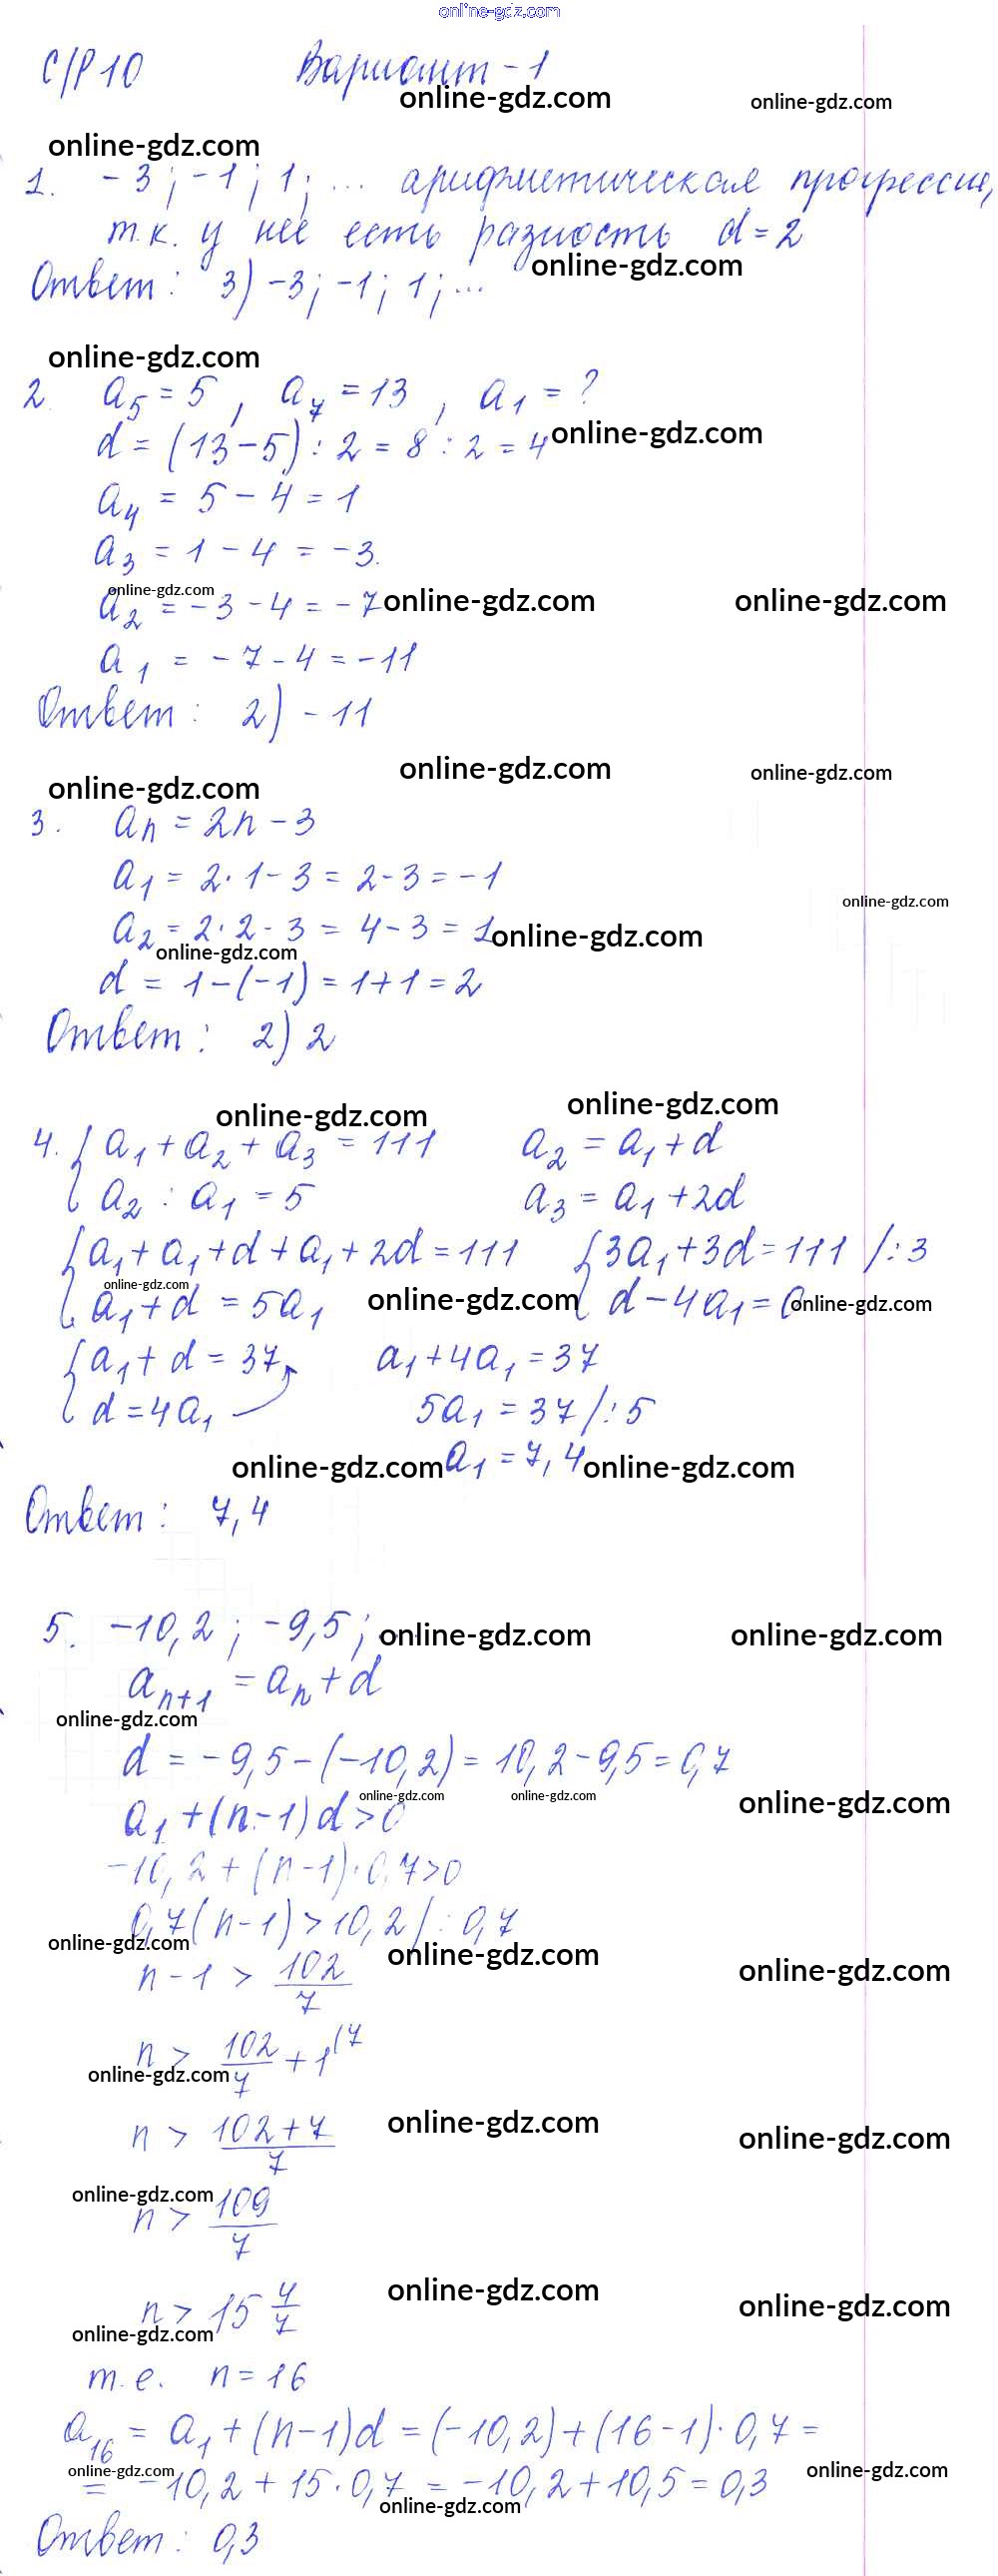 online-gdz.com
С/Р 10 Вариант - 1
online-gdz.com online-gdz.com
online-gdz.com
1. -3; -1; 1; ... арифметическая прогрессия,
т.к. у неё есть разность d = 2
online-gdz.com
Ответ: 3) -3; -1; 1; ...
online-gdz.com
2. a₅ = 5, a₇ = 13, a₁ = ?
d = (13 - 5) : 2 = 8 : 2 = 4 online-gdz.com
a₄ = 5 - 4 = 1
a₃ = 1 - 4 = -3.
online-gdz.com
a₂ = -3 - 4 = -7 online-gdz.com online-gdz.com
a₁ = -7 - 4 = -11
Ответ: 2) -11
online-gdz.com online-gdz.com
online-gdz.com
3. aₙ = 2n - 3
a₁ = 2 · 1 - 3 = 2 - 3 = -1
online-gdz.com
a₂ = 2 · 2 - 3 = 4 - 3 = 1 online-gdz.com
online-gdz.com
d = 1 - (-1) = 1 + 1 = 2
Ответ: 2) 2
online-gdz.com online-gdz.com
4. { a₁ + a₂ + a₃ = 111 a₂ = a₁ + d
{ a₂ : a₁ = 5 a₃ = a₁ + 2d
{ a₁ + a₁ + d + a₁ + 2d = 111 { 3a₁ + 3d = 111 /: 3
online-gdz.com
{ a₁ + d = 5a₁ online-gdz.com { d - 4a₁ = 0 online-gdz.com
{ a₁ + d = 37 a₁ + 4a₁ = 37
{ d = 4a₁ 5a₁ = 37 /: 5
online-gdz.com a₁ = 7,4 online-gdz.com
Ответ: 7,4
5. -10,2; -9,5; online-gdz.com online-gdz.com
aₙ₊₁ = aₙ + d
online-gdz.com
d = -9,5 - (-10,2) = 10,2 - 9,5 = 0,7
online-gdz.com online-gdz.com online-gdz.com
a₁ + (n - 1) d > 0
-10,2 + (n - 1) · 0,7 > 0
0,7 (n - 1) > 10,2 /: 0,7
online-gdz.com online-gdz.com
n - 1 > 102/7 online-gdz.com
n > 102/7 + 1⁽⁷
online-gdz.com
n > (102 + 7)/7 online-gdz.com online-gdz.com
online-gdz.com
n > 109/7
n > 15 4/7 online-gdz.com online-gdz.com
online-gdz.com
т.е. n = 16
a₁₆ = a₁ + (n - 1) d = (-10,2) + (16 - 1) · 0,7 =
online-gdz.com online-gdz.com
= -10,2 + 15 · 0,7 = -10,2 + 10,5 = 0,3
online-gdz.com
Ответ: 0,3